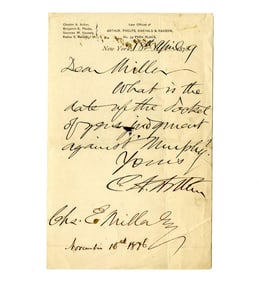 Chester A. Arthur,
Benjamin K. Phelps,
Law Offices of
ARTHUR, PHELPS, KNEVALS & RANSOM,
PARK PLACE,
New York,
Dear Miller
What is the
date of the Docket
of your judgment
against Murphy?
Yours
C. A. Arthur
Chs. E. Miller Esq
November 16th 1876